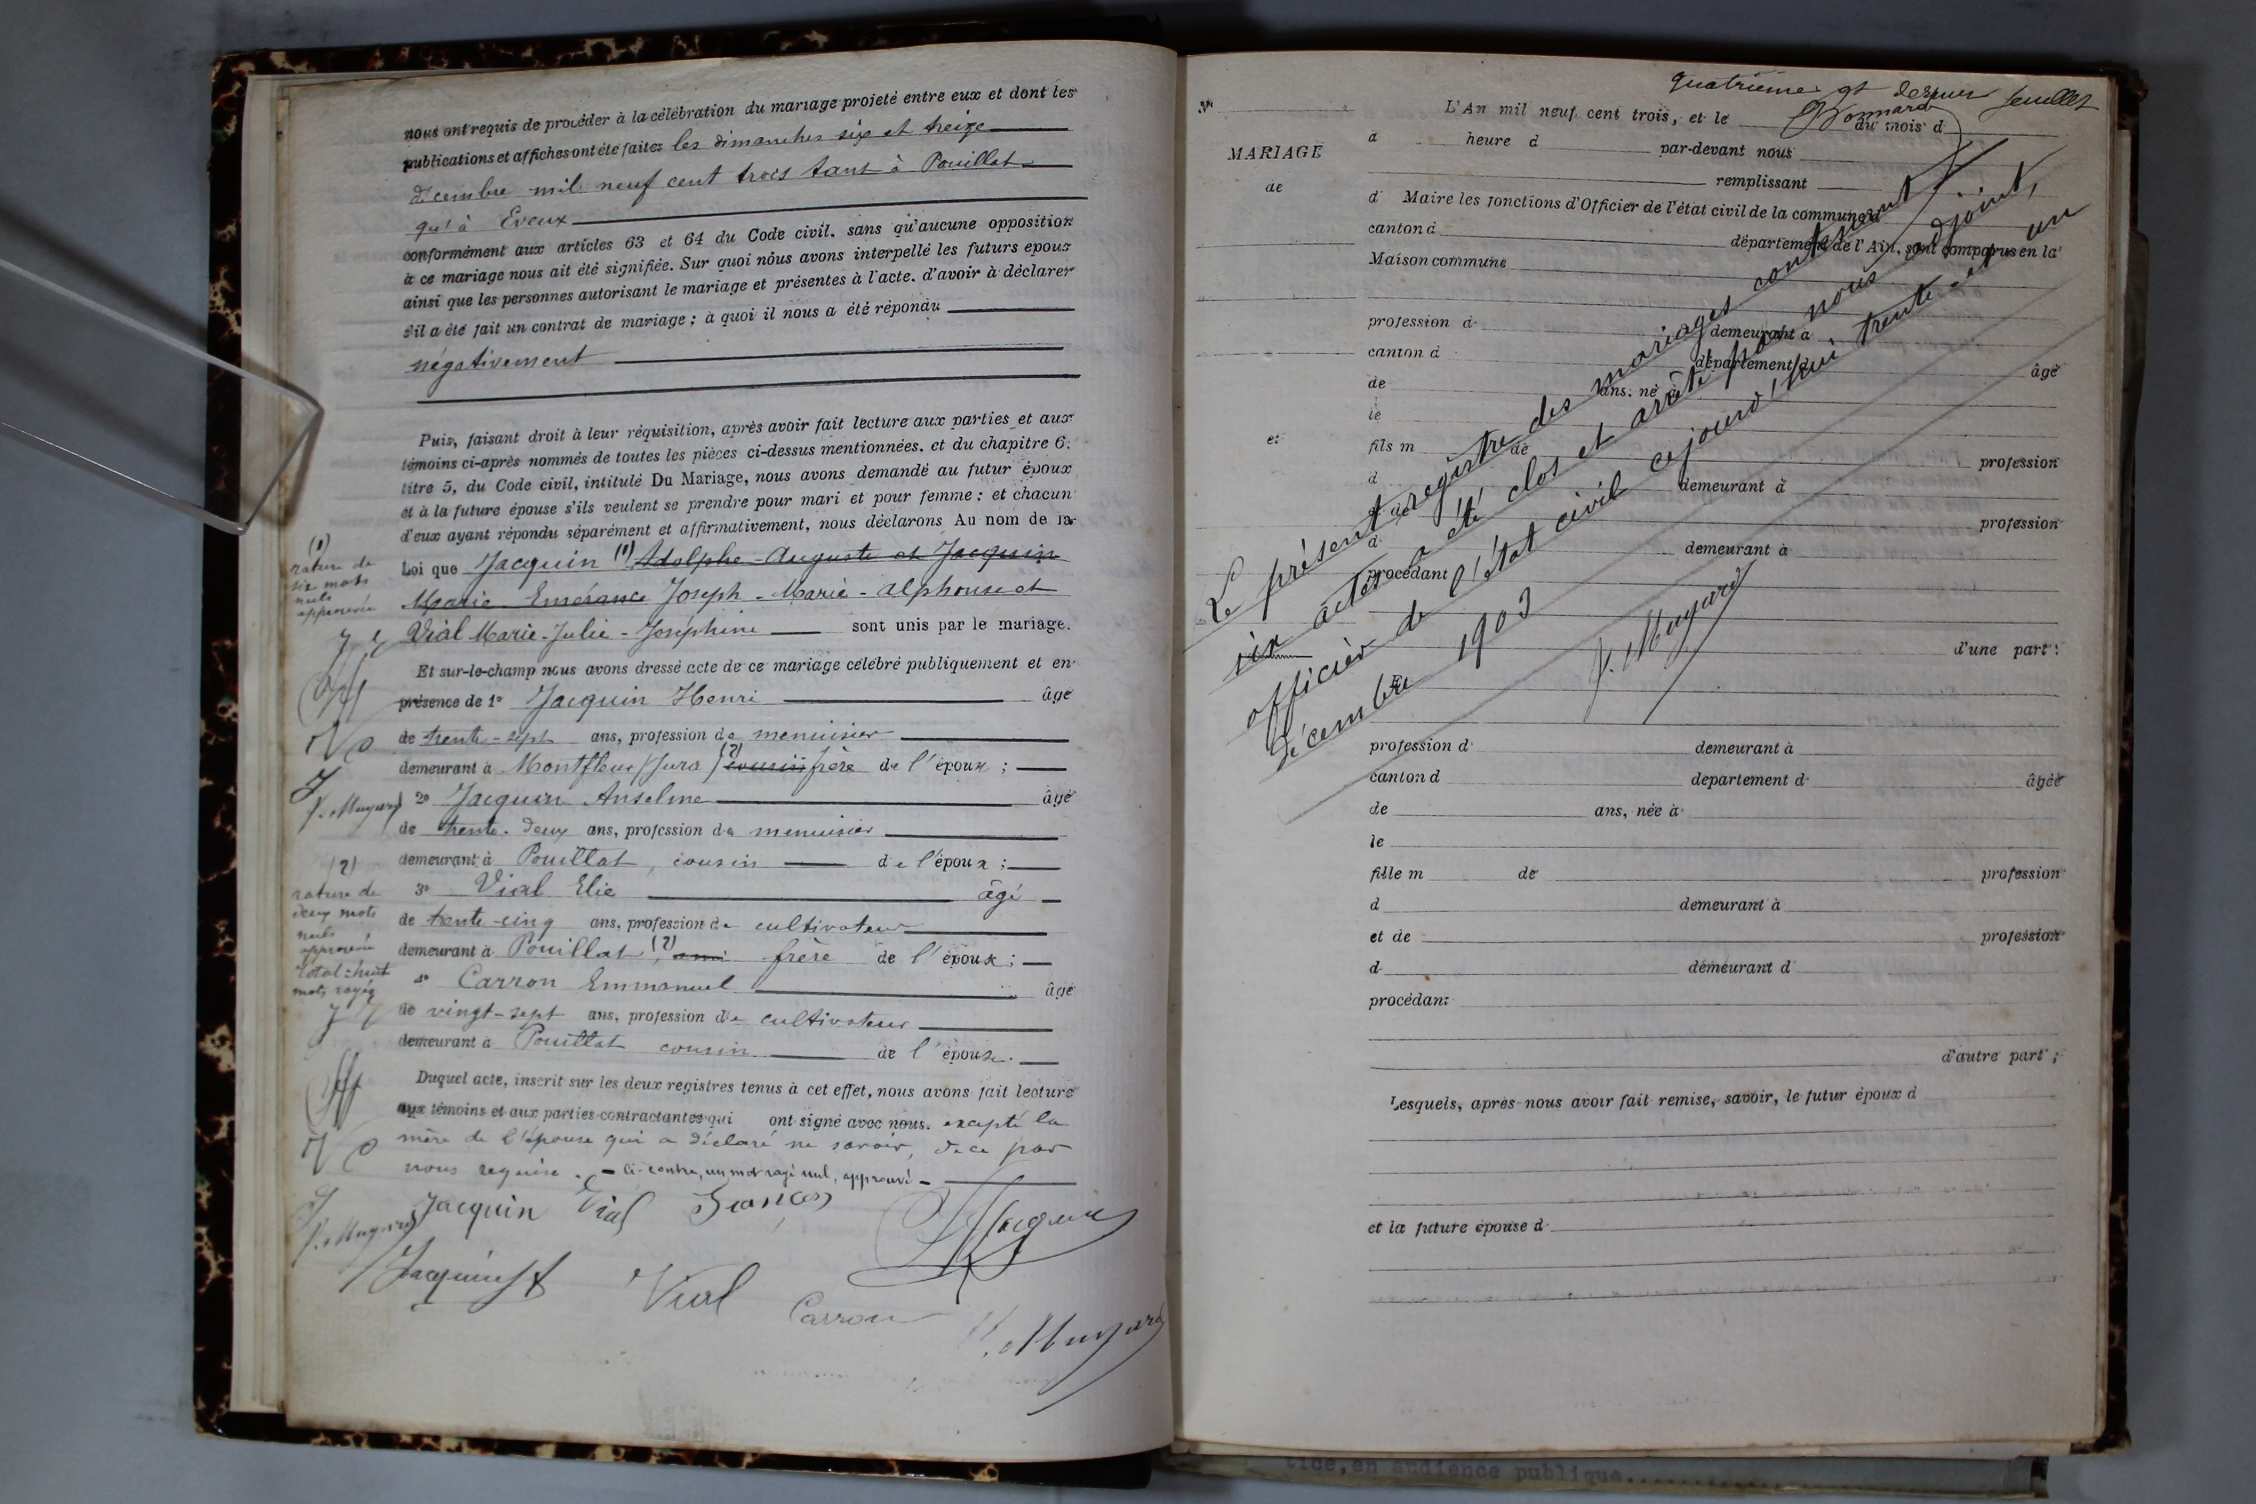 nous ont requis de procéder à la célébration du mariage projeté entre eux et dont les
publications et affiches ont été faites les dimanches six et treize
décembre mil neuf cent trois tant à Pouillat
qu'à Eveux
conformément aux articles 63 et 64 du Code civil. sans qu'aucune opposition
à ce mariage nous ait été signifiée. Sur quoi nous avons interpellé les futurs epoux
ainsi que les personnes autorisant le mariage et présentes à l'acte. d'avoir à déclarer
s'il a été fait un contrat de mariage ; à quoi il nous a été répondu
négativement
Puis, faisant droit à leur réquisition, après avoir fait lecture aux parties et aux
témoins ci-après nommés de toutes les pièces ci-dessus mentionnées. et du chapitre 6.
titre 5, du Code civil, intitulé Du Mariage, nous avons demandé au futur époux
et à la future épouse s'ils veulent se prendre pour mari et pour femme : et chacun
d'eux ayant répondu séparément et affirmativement, nous déclarons Au nom de la
Loi que Jacquin (1) Adolphe-Auguste et Jacquin
Marie Emérance Joseph-Marie-Alphonse et
Vial Marie-Julie-Joséphine sont unis par le mariage.
Et sur-le-champ nous avons dressé acte de ce mariage célébré publiquement et en
présence de 1° Jacquin Henri âgé
de trente-sept ans, profession de menuisier
demeurant à Montfleur (Jura) (2) cousin frère de l'époux ;
2° Jacquin Anselme âgé
de trente-deux ans, profession de menuisier
demeurant à Pouillat, cousin de l'époux ;
3° Vial Elie âgé
de trente-cinq ans, profession de cultivateur
demeurant à Pouillat, (2) ami frère de l'épouse ;
4° Carron Emmanuel âgé
de vingt-sept ans, profession de cultivateur
demeurant à Pouillat cousin de l'épouse.
Duquel acte, inscrit sur les deux registres tenus à cet effet, nous avons fait lecture
aux témoins et aux parties contractantes qui ont signé avec nous. excepté la
mère de l'épouse qui a déclaré ne savoir, de ce par
nous requise. - Ci-contre, un mot rayé nul, approuvé -
Jacquin Vial
Jacquin
Vial
Carron
J. Muyard
(1)
rature de
six mots
nuls
approuvée
J. Muyard
(2)
rature de
deux mots
nuls
approuvée
Total : huit
mots rayés
J. Muyard
quatrième et dernier feuillet
Bonnard
N°
MARIAGE
de
et
L'An mil neuf cent trois, et le du mois d
à heure d par-devant nous
remplissant
d Maire les fonctions d'Officier de l'état civil de la commune d
canton d département de l'Ain, sont comparus en la
Maison commune
profession d demeurant à
canton d département d âgé
de ans. né à
le
fils m de profession
d demeurant à
et de profession
d demeurant à
procédant
d'une part :
Et
profession d demeurant à
canton d département d âgée
de ans, née à
le
fille m de profession
d demeurant à
et de profession
d demeurant d
procédant
d'autre part ;
Lesquels, après nous avoir fait remise, savoir, le futur époux d
et la future épouse d
Le présent registre des mariages contenant
six actes a été clos et arrêté par nous adjoint,
officier de l'état civil ce jourd'hui trente et un
décembre 1903
J. Muyard
tice, en audience publique